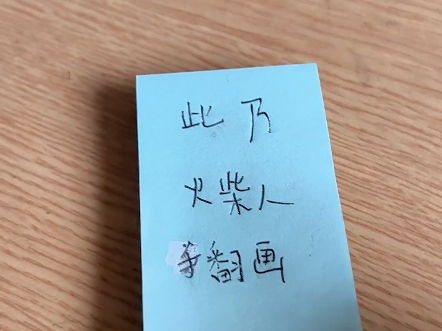 此乃
火柴人
手翻画